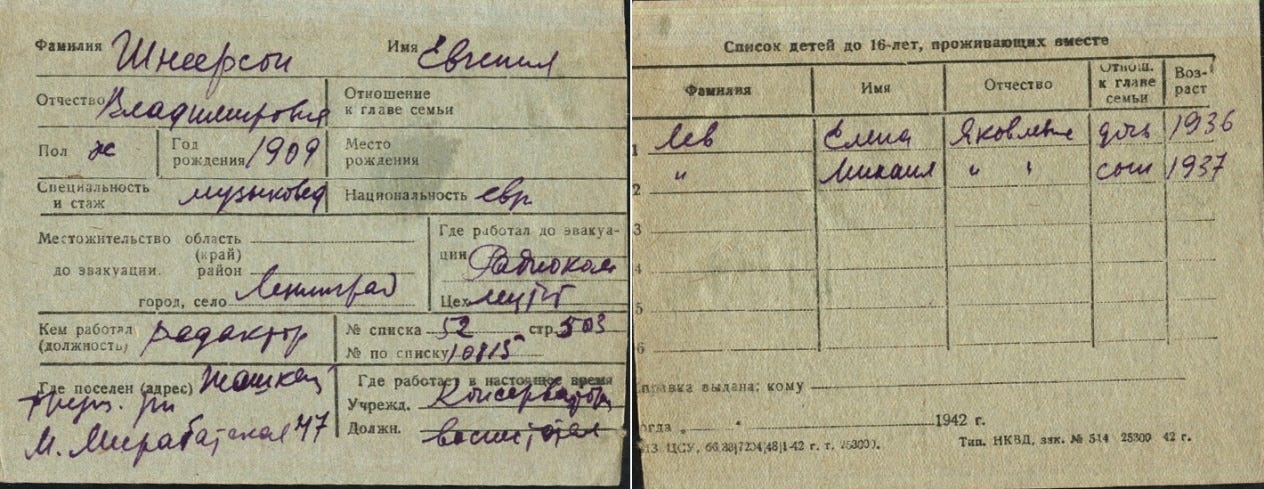 Фамилия Шнеерсон Имя Евгения
Отчество Владимировна Отношение к главе семьи
Пол ж Год рождения 1909 Место рождения
Специальность и стаж музыковед Национальность евр
Местожительство до эвакуации. область (край)
район
город, село Ленинград
Где работал до эвакуации Радиоком
Цех
Кем работал (должность) редактор № списка 52 стр. 503
№ по списку 10815
Где поселен (адрес) Ташкент
М. Мирабатская 47
Где работает в настоящее время
Учрежд. Консерватор
Должн. воспитател
Список детей до 16-лет, проживающих вместе
Фамилия Имя Отчество Отнош. к главе семьи Возраст
1 Лев Елена Яковлевна дочь 1936
2 " Михаил " " сын 1937
3
4
5
6
правка выдана; кому
огда " " 1942 г.
Тип. НКВД, зак. № 514 25300 42 г.